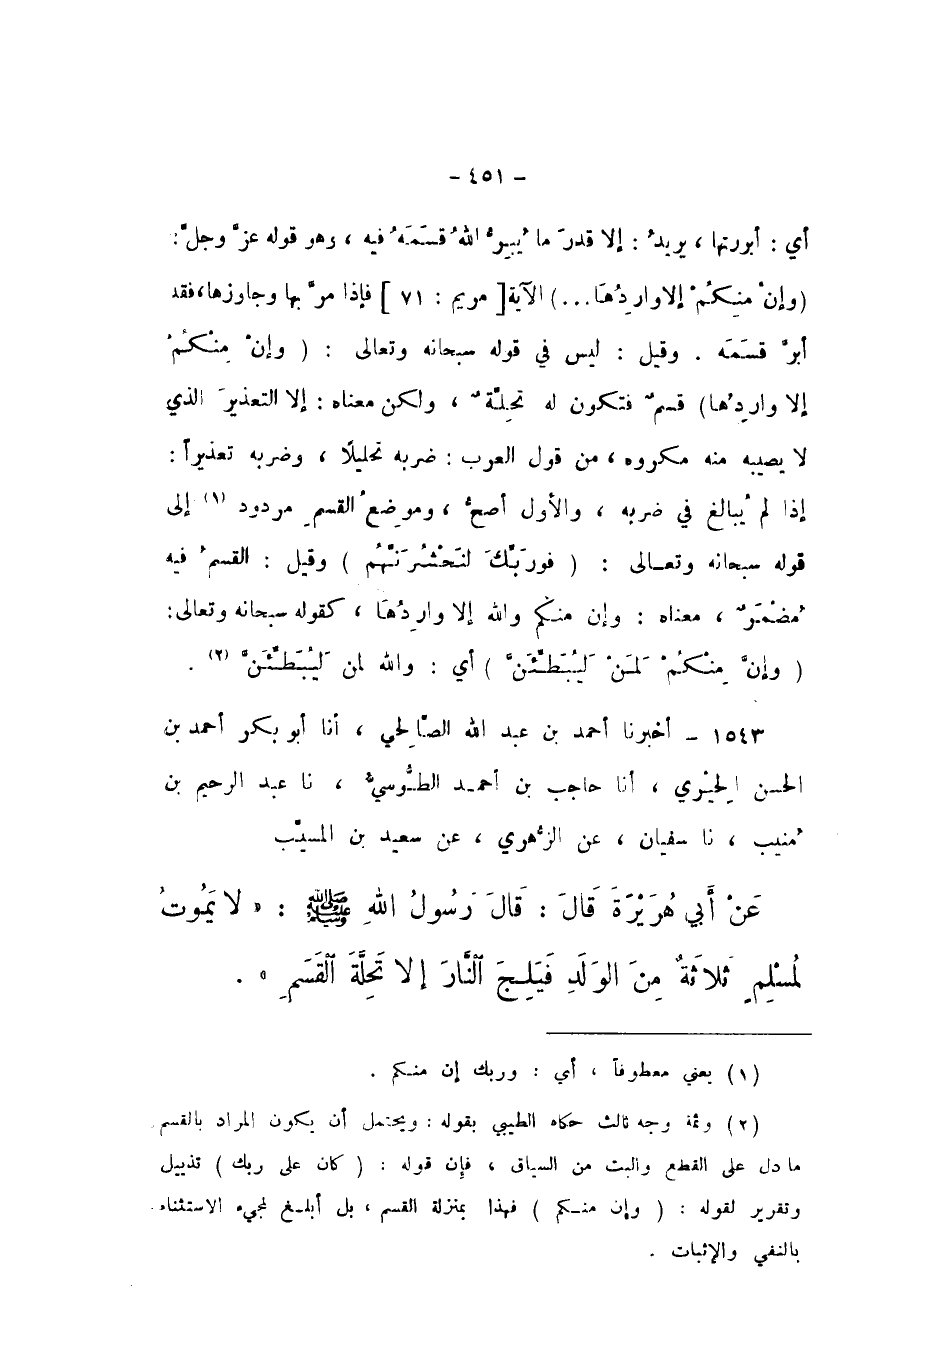 - ٤٥١ -
أي : أبررتها ، يريدُ : إلا قدرَ ما يُبِرُّ اللهُ قسَمَهُ فيه ، وهو قوله عزَّ وجلَّ:
(وإنْ مِنكُمْ إلا وارِدُهَا...) الآية [ مريم : ٧١ ] فإذا مرَّ بها وجاوزها،فقد
أبرَّ قسَمَه . وقيل : ليس في قوله سبحانه وتعالى : ( وإنْ مِنْكُمُ
إلا وارِدُها) قسمٌ فتكون له تحِلَّةٌ ، ولكن معناه : إلا التعذيرَ الذي
لا يصيبه منه مكروه ، من قول العرب : ضربه تحليلًا ، وضربه تعذيراً :
إذا لم يُبالغ في ضربه ، والأول أصحُّ ، وموضِعُ القسمِ مردود (١) إلى
قوله سبحانه وتعـالى : ( فورَبِّكَ لنَحْشُرَنَّهُم ) وقيل : القسمُ فيه
مُضْمَرٌ ، معناه : وإن منكم والله إلا وارِدُهَا ، كقوله سبحانه وتعالى:
( وإنَّ مِنْكُمْ لَمَنْ لَيُبَطِّئَنَّ ) أي : والله لمن لَيُبَطِّئَنَّ (٢) .
١٥٤٣ - أخبرنا أحمد بن عبد الله الصّالِحي ، أنا أبو بكر أحمد بن
الحسن الحِيْري ، أنا حاجب بن أحمـد الطُّوسيُّ ، نا عبد الرحيم بن
مُنيب ، نا سفيان ، عن الزُّهري ، عن سعيد بن المسيّب
عَنْ أَبي هُرَيْرَةَ قَالَ : قَالَ رَسُولُ اللهِ ﷺ : « لا يَمُوتُ
لِمُسْلِمٍ ثَلاثَةٌ مِنَ الوَلَدِ فَيَلِـجَ النَّارَ إلا تَحِلَّةَ القَسَمِ » .
(١) يعني معطوفاً ، أي : وربك إن منـكم .
(٢) وثمة وجه ثالث حكاه الطيبي بقوله : ويحتمل أن يكون المراد بالقسم
ما دل على القطع والبت من السياق ، فإن قوله : ( كان على ربك ) تذييل
وتقرير لقوله : ( وإن منـكم ) فهذا بمنزلة القسم ، بل أبلـغ لمجيء الاستثناء
بالنفي والإثبات .